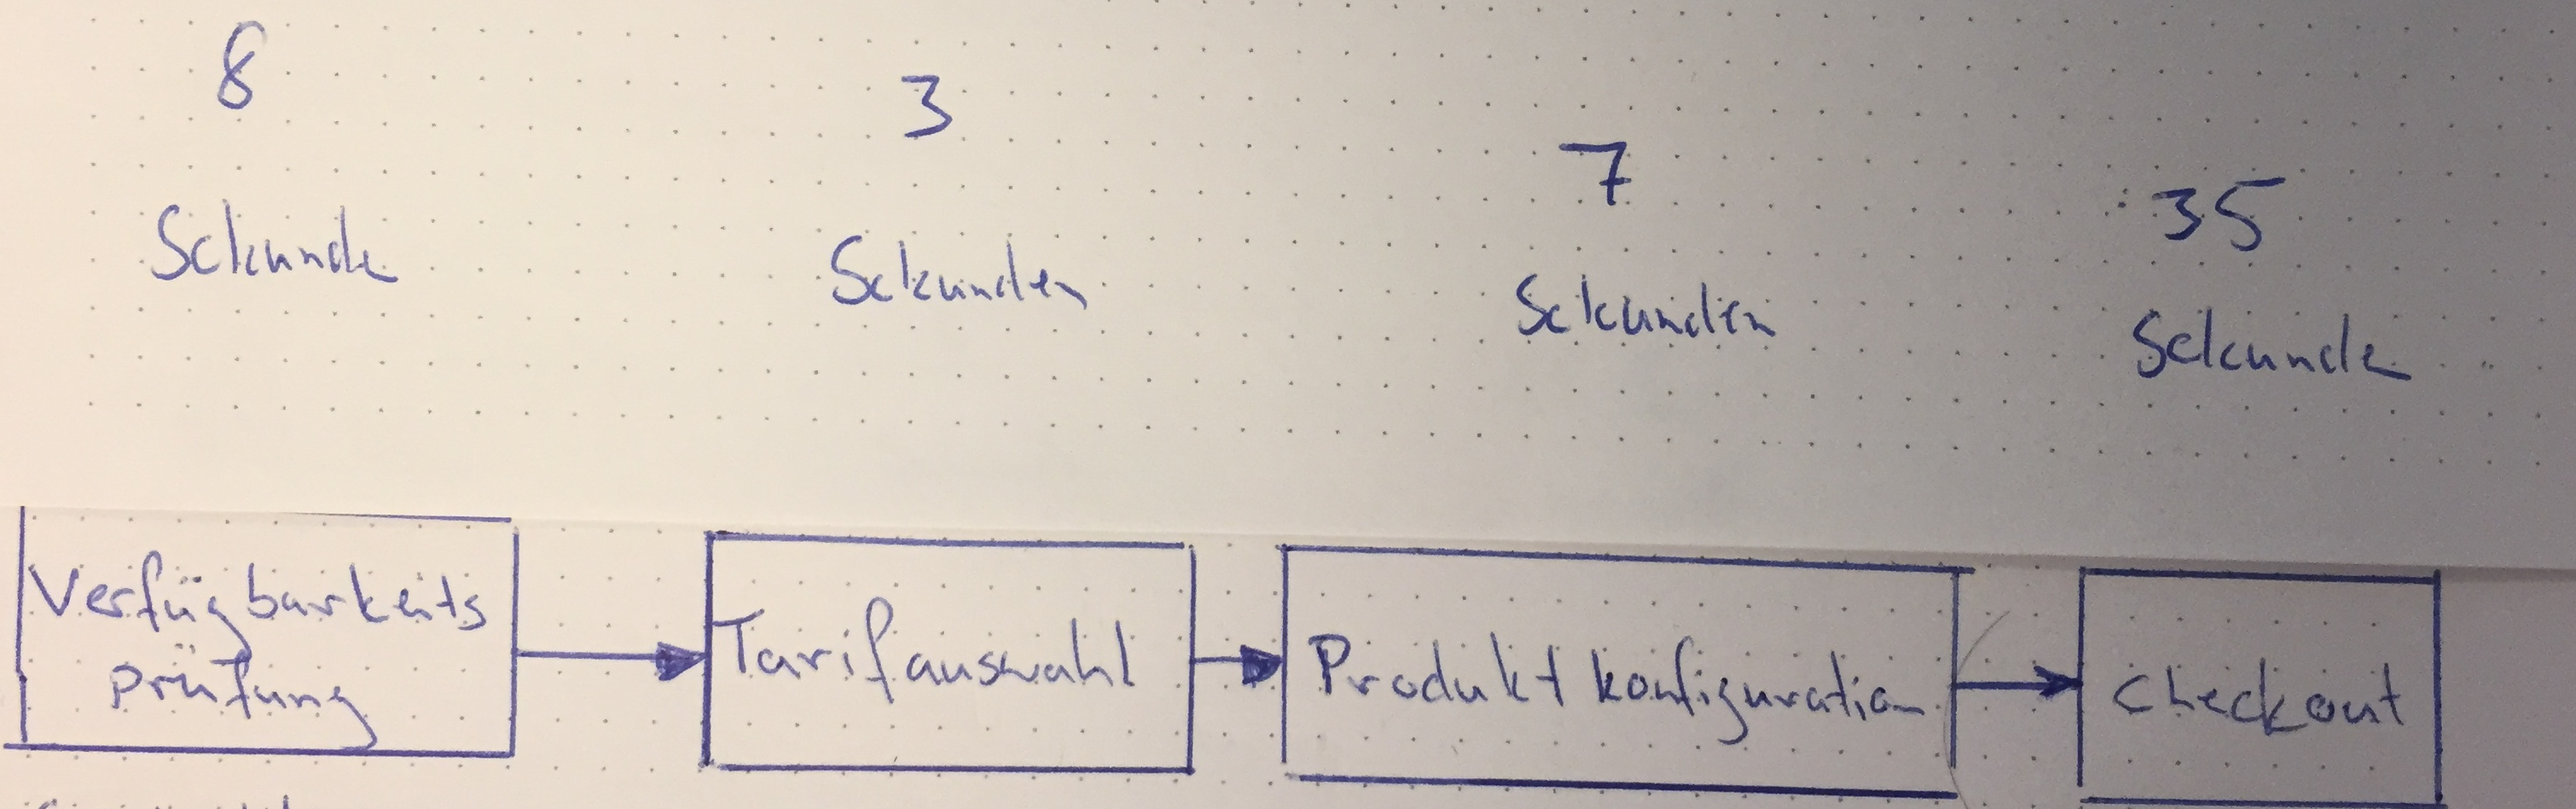 8
Sekunde
3
Sekunden
7
Sekunden
35
Sekunde
Verfügbarkeits
prüfung
Tarifauswahl
Produktkonfiguration
Checkout